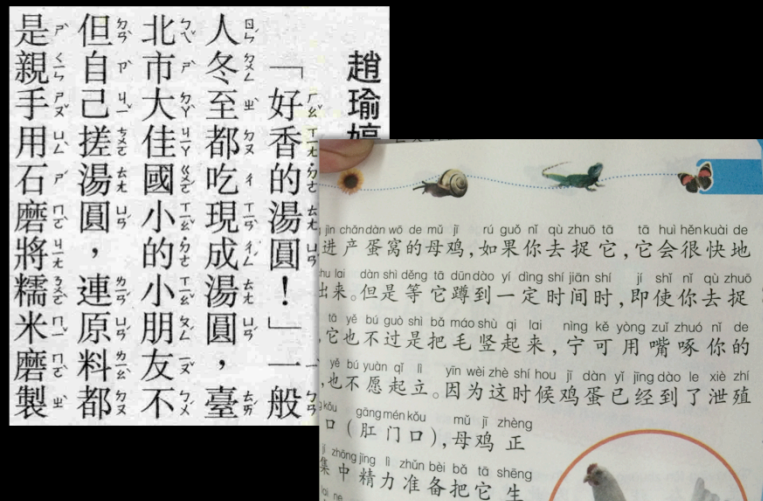 趙瑜
「好香的湯圓!」一般
人冬至都吃現成湯圓,臺
北市大佳國小的小朋友不
但自己搓湯圓,連原料都
是親手用石磨將糯米磨製
jìn chǎndàn wō de mǔ jī rú guǒ nǐ qù zhuō tā tā huì hěnkuài de
进产蛋窝的母鸡,如果你去捉它,它会很快地
lai dàn shì děng tā dūndào yí dìng shí jiān shí jí shǐ nǐ qù zhuō
出来。但是等它蹲到一定时间时,即使你去捉
tā yě bú guò shì bǎ máo shù qi lai nìng kě yòng zuǐ zhuó nǐ de
,它也不过是把毛竖起来,宁可用嘴啄你的
yě bú yuàn qǐ lì yīn wèi zhè shí hou jī dàn yǐ jīng dào le xiè zhí
,也不愿起立。因为这时候鸡蛋已经到了泄殖
kǒu gāng mén kǒu mǔ jī zhèng
口(肛门口),母鸡正
zhōng jīng lì zhǔn bèi bǎ tā shēng
集中精力准备把它生